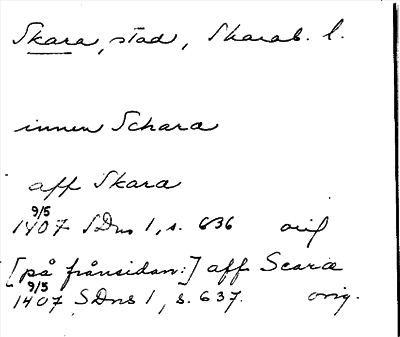 Skara, stad, Skarab. l.
innen Schara
aff Skara
9/5
1407 SDns 1, s. 636 orig
[på frånsidan:] aff Scaræ
9/5
1407 SDns 1, s. 637. orig.